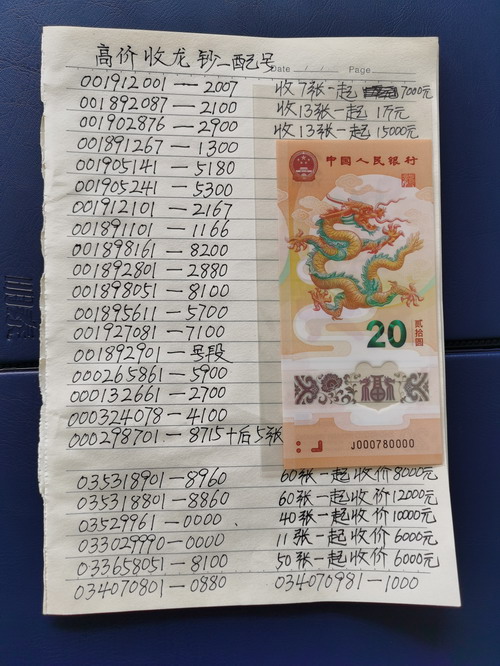 高价收龙钞一配号
Date / / Page
001912001—2007 收7张一起 7000元
001892087—2100 收13张一起 1万元
001902876—2900 收13张一起 15000元
001891267—1300
001905141—5180
001905241—5300
001912101—2167
001891101—1166
001898161—8200
001892801—2880
001898051—8100
001895611—5700
001927081—7100
001892901—号段
000265861—5900
000132661—2700
000324078—4100
000298701—8715+后5张
中国人民银行
20
贰拾圆
福
J000780000
035318901—8960 60张一起收价8000元
035318801—8860 60张一起收价12000元
03529961—0000. 40张一起收价10000元
033029990—0000 11张一起收价6000元
033658051—8100 50张一起收价6000元
034070801—0880 034070981—1000